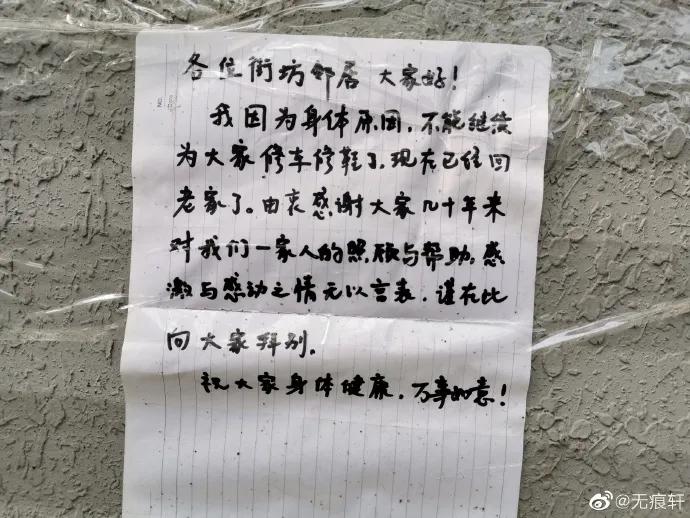 各位街坊邻居 大家好！
我因为身体原因，不能继续
为大家修车修鞋了，现在已经回
老家了。由衷感谢大家几十年来
对我们一家人的照顾与帮助，感
激与感动之情无以言表，谨在此
向大家拜别。
祝大家身体健康，万事如意！
NO.
@无痕轩